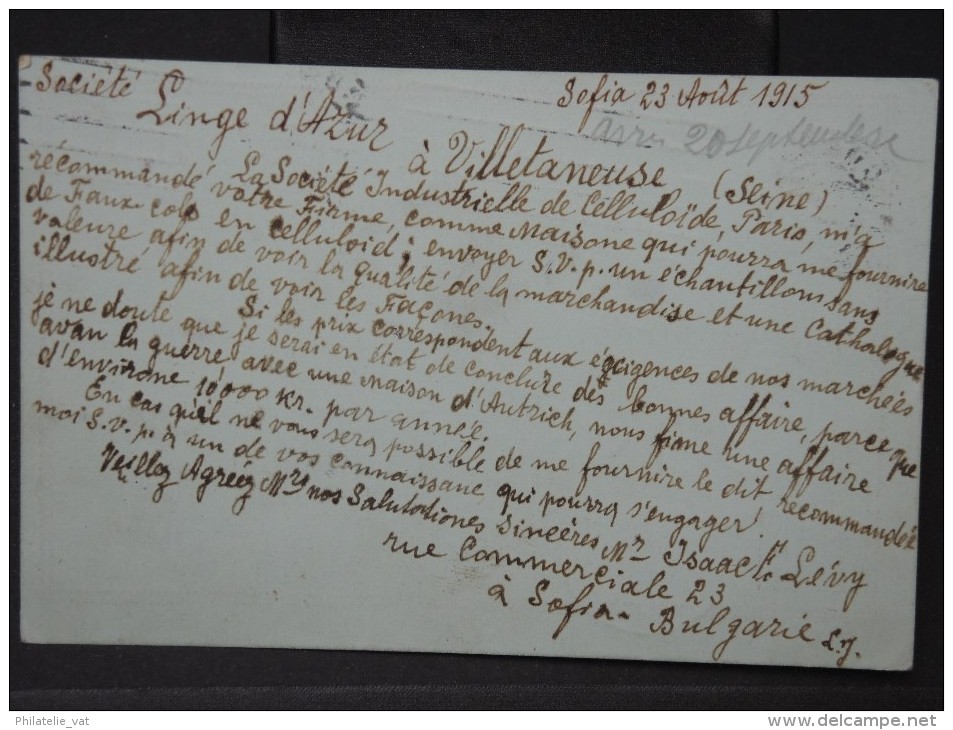 Société
Sofia 23 Août 1915
Linge d'Azur
20 septembre
à Villetaneuse (Seine)
La Société Industrielle de Célluloïde, Paris, m'a
récommandé votre Firme, comme Maisone qui pourra me fournire
de Faux-cols en celluloid; envoyer S.V.p. un échantillons sans
valeure afin de voir la qualité de la marchandise et une Cathalogue
illustré afin de voir les Façones.
Si les prix correspondent aux éxigences de nos marchées
je ne doute que je serai en état de conclure des bonnes affaire, parce que
avan la guerre, avec une Maison d'Autrich, nous fime une affaire
d'environe 10'000 Kr. par année.
En cas qu'il ne vous sera possible de me fournire le dit, recommandéz
moi S.v.p. à un de vos connaissanc qui pourra s'engager!
Veillez Agréez Mrs nos Salutationes Sincères Mr Isaac H. Lévy
rue Commerciale 23
à Sofia - Bulgarie
Philatelie_vat
www.delcampe.net